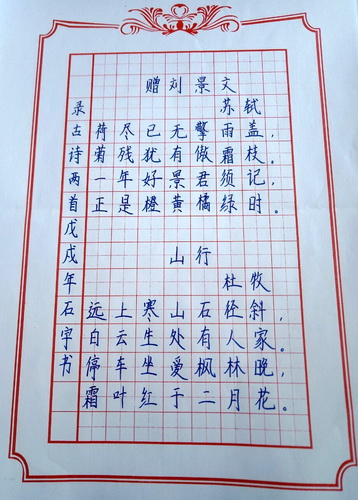 赠刘景文
苏轼
荷尽已无擎雨盖，
菊残犹有傲霜枝。
一年好景君须记，
正是橙黄橘绿时。
山行
杜牧
远上寒山石径斜，
白云生处有人家。
停车坐爱枫林晚，
霜叶红于二月花。
录古诗两首戊戌年石宇书